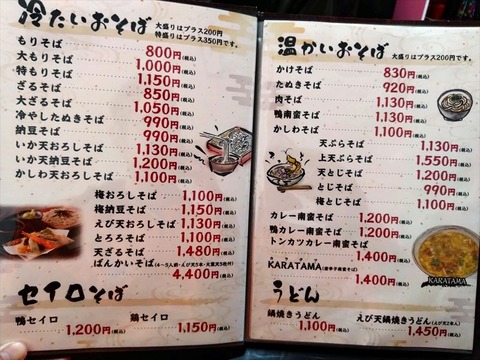 冷たいおそば 大盛りはプラス200円
特盛りはプラス350円です。
もりそば 800円(税込)
大もりそば 1,000円(税込)
特もりそば 1,150円(税込)
ざるそば 850円(税込)
大ざるそば 1,050円(税込)
冷やしたぬきそば 990円(税込)
納豆そば 990円(税込)
いか天おろしそば 1,130円(税込)
いか天納豆そば 1,200円(税込)
かしわ天おろしそば 1,100円(税込)
梅おろしそば 1,100円(税込)
梅納豆そば 1,150円(税込)
えび天おろしそば 1,130円(税込)
とろろそば 1,100円(税込)
天ざるそば 1,480円(税込)
ばんかいそば(4〜5人前・
4,400円(税込)
セイロそば
鴨セイロ 1,200円(税込)
鶏セイロ 1,150円(税込)
温かいおそば 大盛りはプラス200円です。
かけそば 830円(税込)
たぬきそば 920円(税込)
肉そば 1,130円(税込)
鴨南蛮そば 1,130円(税込)
かしわそば 1,100円(税込)
天ぷらそば 1,130円(税込)
上天ぷらそば 1,550円(税込)
天とじそば 1,200円(税込)
とじそば 990円(税込)
梅とじそば 1,100円(税込)
カレー南蛮そば 1,200円(税込)
鴨カレー南蛮そば 1,200円(税込)
トンカツカレー南蛮そば
1,400円(税込)
KARATAMA(唐辛子南蛮そば)
1,400円(税込)
KARATAMA
うどん
鍋焼きうどん 1,100円(税込)
えび天鍋焼きうどん(えび天2本入)
1,450円(税込)